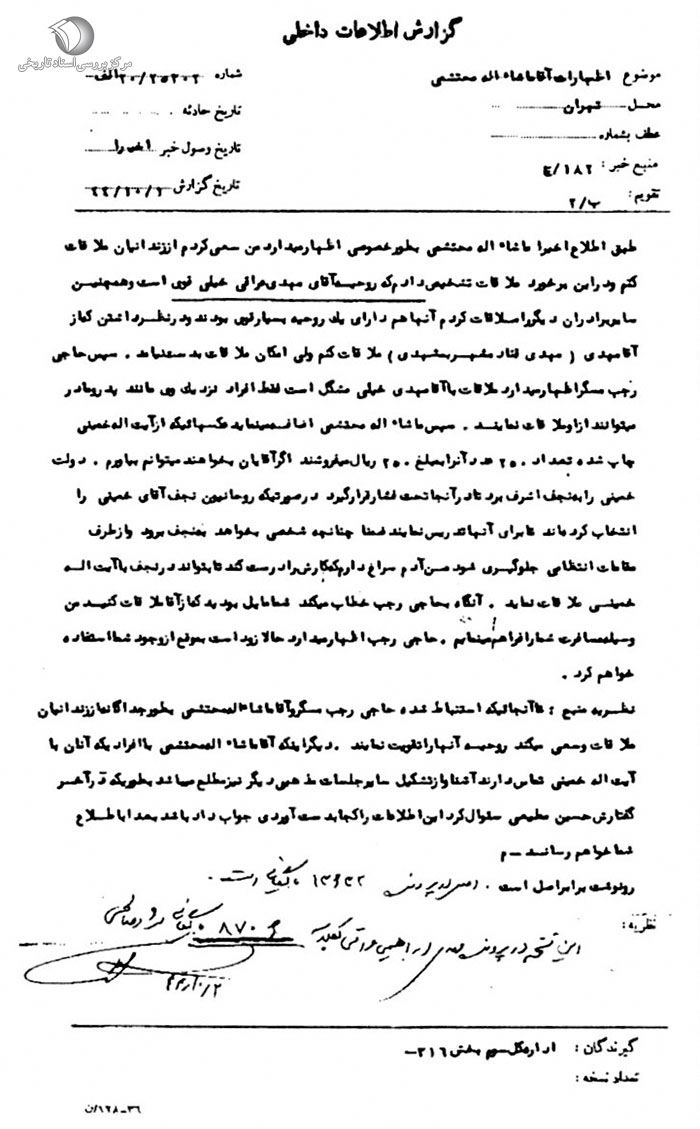 مرکز بررسی اسناد تاریخی
گزارش اطلاعات داخلی
موضوع اظهارات آقا ماشاء اله محتشمی
شماره ۲۰/۲۵۳۰۲ الف
محل تهران
تاریخ حادثه
عطف بشماره
تاریخ وصول خبر اخیرا
منبع خبر : ۱۸۲/ج
تاریخ گزارش ۴۴/۱۰/۲
تقویم : ب/۲
طبق اطلاع اخیرا ماشاء اله محتشمی بطور خصوصی اظهار میدارد من سعی کردم از زندانیان ملاقات
کنم و در این برخورد ملاقات تشخیص دادم که روحیه آقای مهدی عراقی خیلی قوی است و همچنین
سایر برادران دیگر را ملاقات کردم آنها هم دارای یك روحیه بسیار قوی بودند و در نظر داشتم که از
آقا مهدی ( مهدی قناد مشهر بمشهدی ) ملاقات کنم ولی امکان ملاقات بدست نیامد . سپس حاجی
رجب مسگر اظهار میدارد ملاقات با آقا مهدی خیلی مشگل است فقط افراد نزدیك وی مانند پدر و مادر
میتوانند از او ملاقات نمایند . سپس ماشاء اله محتشمی اضافه مینماید عکسهائیکه از آیت اله خمینی
چاپ شده تعداد ۲۵۰ عدد آنرا بمبلغ ۲۵۰ ریال میفروشند اگر آقایان بخواهند میتوانم بیاورم . دولت
خمینی را به نجف اشرف برد تا در آنجا تحت فشار قرار گیرد در صورتیکه روحانیون نجف آقای خمینی را
انتخاب کرده‌اند تا برای آنها تدریس نمایند ضمنا چنانچه شخصی بخواهد به نجف برود و از طرف
مقامات انتظامی جلوگیری شود من آدم سراغ دارم که کارش را درست کند تا بتواند در نجف با آیت اله
خمینی ملاقات نماید . آنگاه بحاجی رجب خطاب میکند شما مایل بودید که از آقا ملاقات کنید من
وسیله مسافرت شما را فراهم مینمایم . حاجی رجب اظهار میدارد حالا زود است بموقع از وجود شما استفاده
خواهم کرد .
نظریه منبع : تا آنجائیکه استنباط شده حاجی رجب مسگر و آقا ماشاء اله محتشمی بطور جداگانه از زندانیان
ملاقات و سعی میکند روحیه آنها را تقویت نمایند . دیگر اینکه آقا ماشاء اله محتشمی با افرادیکه آنان با
آیت اله خمینی تماس دارند آشنا و از تشکیل سایر جلسات مذهبی دیگر نیز مطلع میباشد بطوریکه در آخر
گفتارش حسین مطیعی سئوال کرد این اطلاعات را کجا بدست آوردی جواب داد باشد بعدا باطلاع
شما خواهم رسانید ـ م
رونوشت برابر اصل است . اصل در پرونده ۱۳۶۳۲ بایگانی است .
نظریه :
این نسخه در پرونده مهدی ابراهیم عراقی
۸۷۰
۴۴/۱۰/۲
گیرندگان : اداره کل سوم بخش ۳۱۶ـ
تعداد نسخه :
۳۶ـ۱۲۸/ن